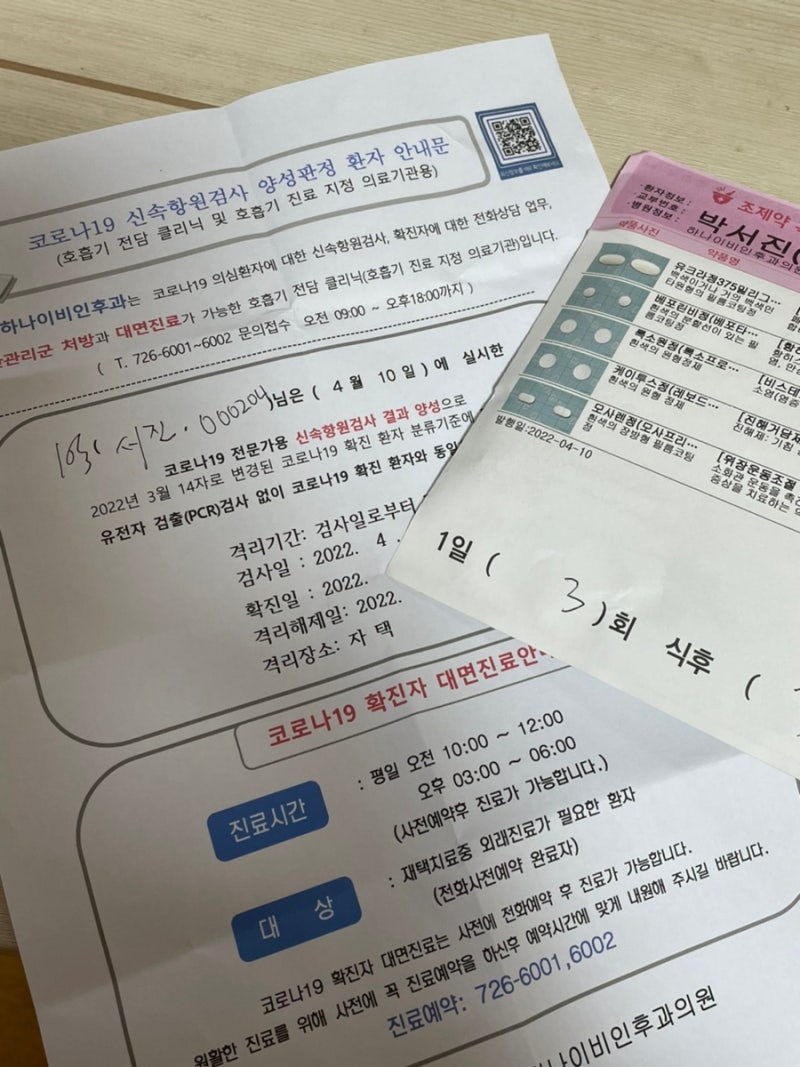 코로나19 신속항원검사 양성판정 환자 안내문
(호흡기 전담 클리닉 및 호흡기 진료 지정 의료기관용)
하나이비인후과는 코로나19 의심환자에 대한 신속항원검사, 확진자에 대한 전화상담 업무,
관리군 처방과 대면진료가 가능한 호흡기 전담 클리닉(호흡기 진료 지정 의료기관)입니다.
( T. 726-6001~6002 문의접수 오전 09:00 ~ 오후18:00까지 )
서진. 000204 )님은 ( 4 월 10 일 ) 에 실시한
코로나19 전문가용 신속항원검사 결과 양성으로
2022년 3월 14자로 변경된 코로나19 확진 환자 분류기준에
유전자 검출(PCR)검사 없이 코로나19 확진 환자와 동일
격리기간: 검사일로부터
검사일 : 2022. 4 .
확진일 : 2022.
격리해제일: 2022.
격리장소: 자 택
코로나19 확진자 대면진료안내
진료시간
: 평일 오전 10:00 ~ 12:00
오후 03:00 ~ 06:00
(사전예약후 진료가 가능합니다.)
대 상
: 재택치료중 외래진료가 필요한 환자
(전화사전예약 완료자)
코로나19 확진자 대면진료는 사전에 전화예약 후 진료가 가능합니다.
원활한 진료를 위해 사전에 꼭 진료예약을 하신후 예약시간에 맞게 내원해 주시길 바랍니다.
진료예약: 726-6001,6002
나이비인후과의원
조제약
환자정보 :
교부번호 :
병원정보 :
박서진(
하나이비인후과의원
약품사진
약품명
유크라정375밀리그...
백색이거나 거의 백색의
타원형의 필름코팅정
베포린비정(베포타...
흰색의 분할선이 있는 필
름코팅정
록소원정(록소프로...
흰색의 원형정제
소염(염증
케이투스정(레보드...
흰색의 원형 정제
[진해거담제
진해제: 기침
모사렌정(모사프리...
흰색의 장방형 필름코팅
정
[위장운동조절
소화관 운동을 촉
증상을 치료하는
발행일:2022-04-10
1일 ( 3 )회 식후 (